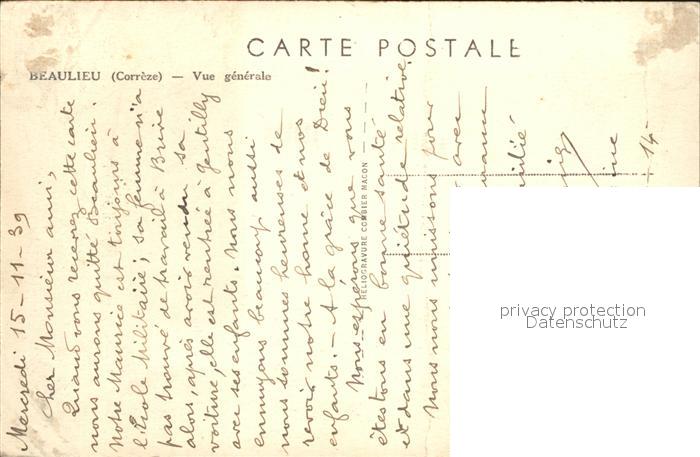 CARTE POSTALE
BEAULIEU (Corrèze) — Vue générale
HELIOGRAVURE COMBIER MACON
Mercredi 15-11-39
Cher Monsieur ami,
Quand vous recevrez cette carte
nous aurons quitté Beaulieu.
Notre Maurice est toujours à
l'Ecole Militaire; sa femme n'a
pas trouvé de travail à Brive
alors, après avoir rendu sa
voiture, elle est rentrée à Gentilly
avec ses enfants. Nous nous
ennuyons beaucoup aussi
nous sommes heureuses de
revoir notre home et nos
enfants. — A la grâce de Dieu!
Nous espérons que vous
êtes tous en bonne santé
et dans une quiétude relative.
Nous nous unissons pour
avec
14-
privacy protection
Datenschutz